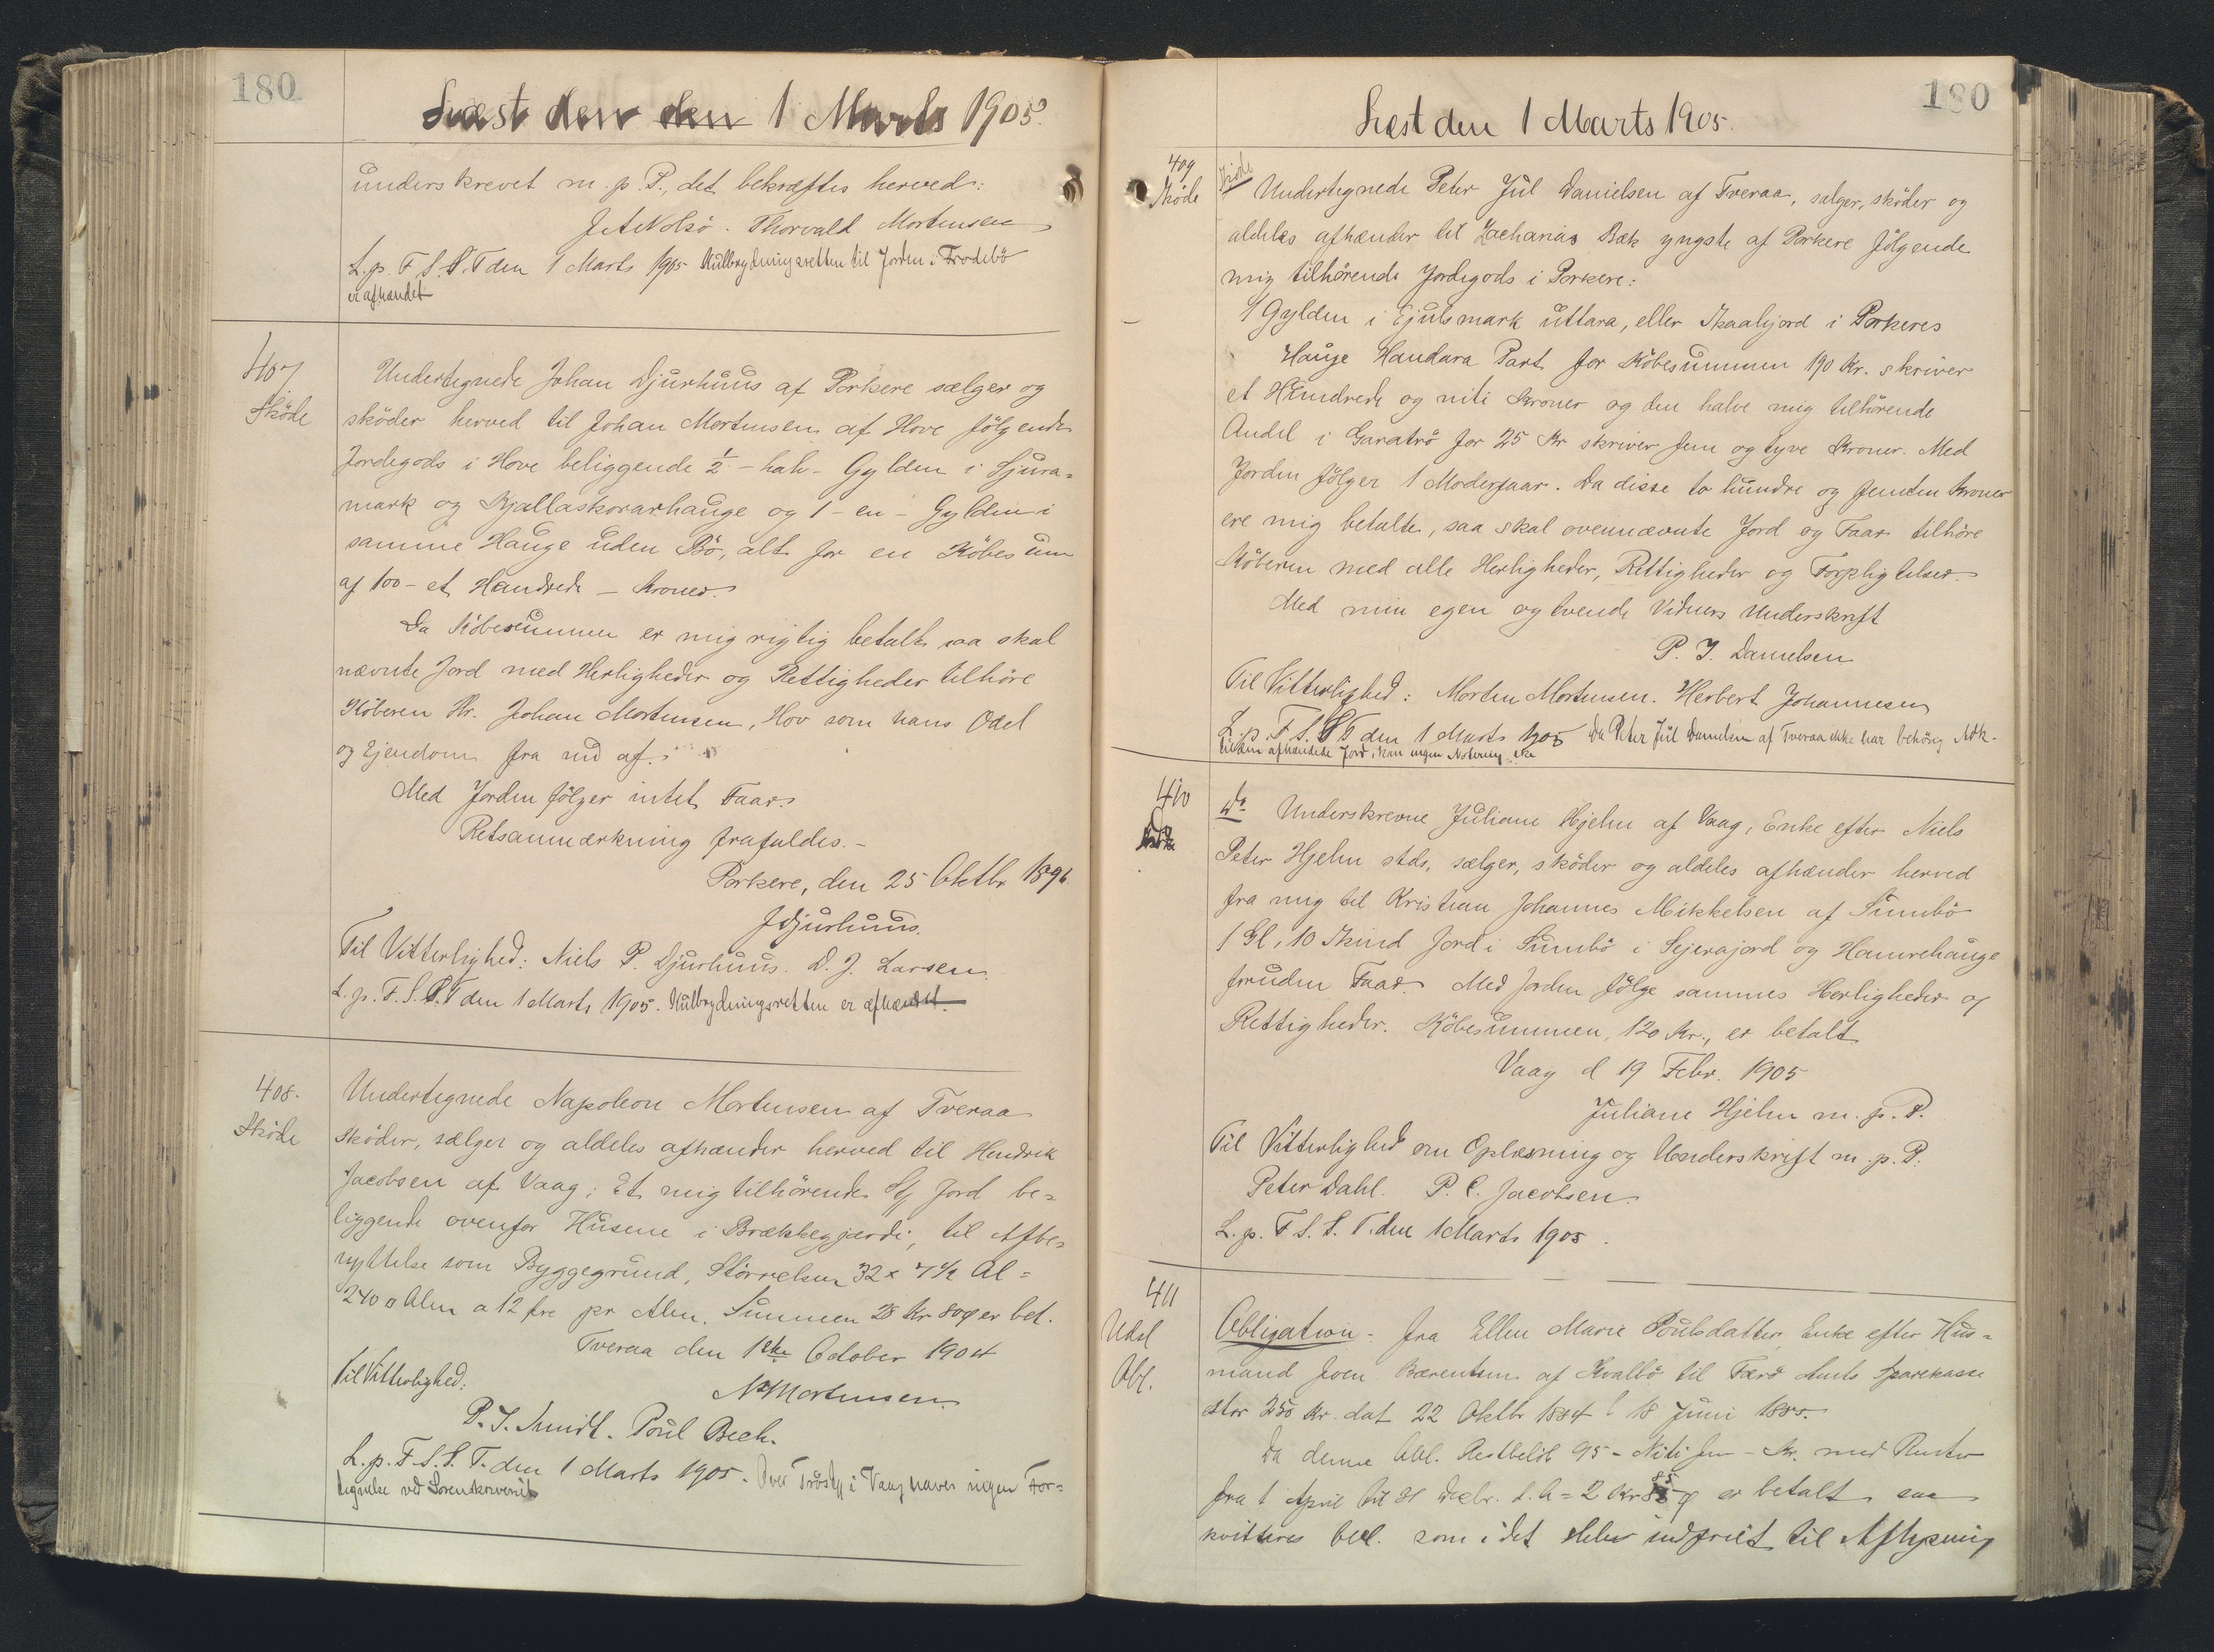 180
Læst den den 1 Marts 1905.
underskrevet m. p. P., det bekræftes herved:
J. A. Nolsö. Thorvald Mortensen
L. p. F. S. S. T den 1 Marts 1905 Kulbrydningsretten til Jorden i Frodebö
er afhændet
407
Sköde
Undertegnede Johan Djurhuus af Porkere sælger og
sköder herved til Johan Mortensen af Hove fölgende
Jordegods i Hove beliggende ½ - halv - Gylden i Djura-
mark og Kjallaskorarhauge og 1 - en - Gylden i
samme Hauge uden Bö, alt for en Köbesum
af 100 - et Hundrede - Kroner.
Da Köbesummen er mig rigtig betalt saa skal
nævnte Jord med Herligheder og Rettigheder tilhöre
Köberen Hr. Johan Mortensen, Hov som hans Odel
og Ejendom fra nu af.
Med Jorden fölger intet Faar.
Retsanmærkning frafaldes.-
Porkere, den 25 Oktbr 1896
J Djurhuus.
Til Vitterlighed: Niels P. Djurhuus. D. J. Larsen.
L. p. F. S. S. T den 1 Marts 1905. Kulbrydningsretten er afhændet.
408.
Sköde
Undertegnede Napoleon Mortensen af Tveraa
sköder, sælger og aldeles afhænder herved til Hendrik
Jacobsen af Vaag; Et mig tilhörende Stk Jord be-
liggende ovenfor Husene i Brækkegjærdi, til Afbe-
nyttelse som Byggegrund, Störrelsen 32 x 7½ Al =
240 □ Alen a 12 Øre pr Alen. Summen 28 Kr 80 Ø er bet.
Tveraa den 1ste October 1904
Til Vitterlighed:
N Mortensen.
P. J. Smidt. Poul Bech.
L. p. F. S. S. T. den 1 Marts 1905. Over Tröstp i Vaag haves ingen For-
tegnelse ved Sorenskriveriet
180
Læst den 1 Marts 1905.
409
Sköde
Sköde
Undertegnede Peter Jul Danielsen af Tveraa, sælger, sköder og
aldeles afhænder til Zacharias Bæk yngste af Porkere fölgende
mig tilhörende Jordegods i Porkere:
1 Gylden i Ejulsmark uttara, eller Skaalijord i Porkeres
Hauge Handara Part for Köbesummen 190 Kr. skriver
et Hundrede og niti Kroner og den halve mig tilhörende
Andel i Garatrö for 25 Kr skriver fem og tyve Kroner. Med
Jorden fölger 1 Moderfaar. Da disse to hundre og femten Kroner
ere mig betalte, saa skal ovennævnte Jord og Faar tilhöre
Köberen med alle Herligheder, Rettigheder og Forpligtelser.
Med min egen og tvende Vidners Underskrift
P. J. Danielsen
Til Vitterlighed: Morten Mortensen. Herbert Johannesen
L. p. F. S. S T den 1 Marts 1905 Da Peter Jul Danielsen af Tveraa ikke har behörig Adk-
til den afhændede Jord, kan ingen Notering ske
410
Sköde
do Underskrevne Juliane Hjelm af Vaag, Enke efter Niels
Peter Hjelm stds, sælger, sköder og aldeles afhænder herved
fra mig til Kristian Johannes Mikkelsen af Sumbö
1 Gl, 10 Skind Jord i Sumbö i Sejerajord og Hamrehauge
foruden Faar. Med Jorden fölge sammes Herligheder og
Rettigheder. Köbesummen, 120 Kr., er betalt.
Vaag d 19 Febr. 1905
Juliane Hjelm m. p. P.
Til Vitterlighed om Oplæsning og Underskrift m. p. P.
Peter Dahl. P. C. Jacobsen.
L. p. F. S. S. T. den 1 Marts 1905.
411
Udsl
Obl.
Obligation - fra Ellen Marie Poulsdatter, Enke efter Hus-
mand Joen Bærentsen af Kvalbö til Færö Amts Sparekasse
stor 250 Kr. dat 22 Oktbr 1884 18 Juni 1885.
Da denne Obl. Restbelöb 95 - Niti fem - Kr. med Renter
fra 1 April til 31 Decbr. d. A = 2 Kr 85 Ø er betalt saa
kvitteres Obl. som i det Hele indfriet til Aflysning